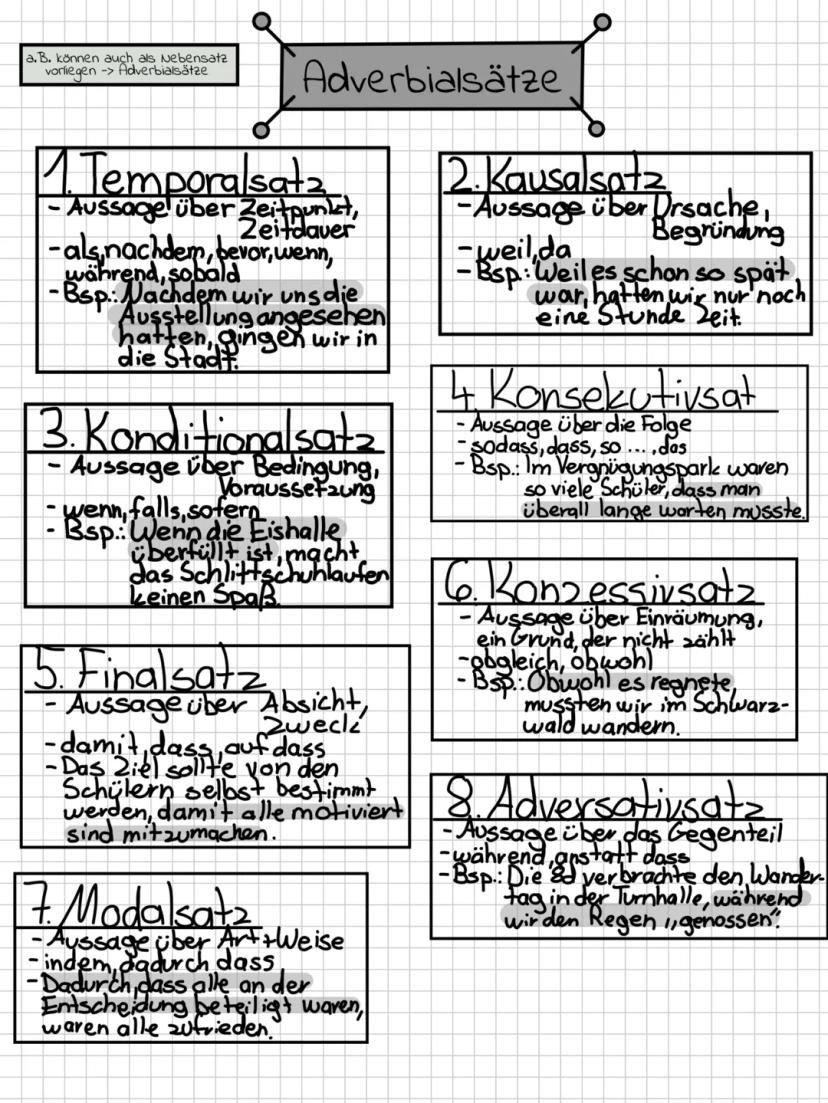 a.B. können auch als Nebensatz
vorliegen -> Adverbialsätze
Adverbialsätze
1. Temporalsatz
- Aussage über Zeitpunkt,
Zeitdauer
- als, nachdem, bevor, wenn,
während, sobald
- Bsp.: Nachdem wir uns die
Ausstellung angesehen
hatten, gingen wir in
die Stadt.
2. Kausalsatz
- Aussage über Ursache,
Begründung
- weil, da
- Bsp.: Weil es schon so spät
war, hatten wir nur noch
eine Stunde Zeit.
3. Konditionalsatz
- Aussage über Bedingung,
Voraussetzung
- wenn, falls, sofern
- Bsp.: Wenn die Eishalle
überfüllt ist, macht
das Schlittschuhlaufen
keinen Spaß.
4. Konsekutivsat
- Aussage über die Folge
- sodass, dass, so ..., das
- Bsp.: Im Vergnügungspark waren
so viele Schüler, dass man
überall lange warten musste.
5. Finalsatz
- Aussage über Absicht,
Zweck
- damit, dass, auf dass
- Das Ziel sollte von den
Schülern selbst bestimmt
werden, damit alle motiviert
sind mitzumachen.
6. Konzessivsatz
- Aussage über Einräumung,
ein Grund, der nicht zählt
- obgleich, obwohl
- Bsp.: Obwohl es regnete
mussten wir im Schwarz-
wald wandern.
7. Modalsatz
- Aussage über Art + Weise
- indem, dadurch dass
- Dadurch, dass alle an der
Entscheidung beteiligt waren,
waren alle zufrieden.
8. Adversativsatz
- Aussage über das Gegenteil
- während, anstatt dass
- Bsp.: Die 8d verbrachte den Wander-
tag in der Turnhalle, während
wir den Regen „genossen".